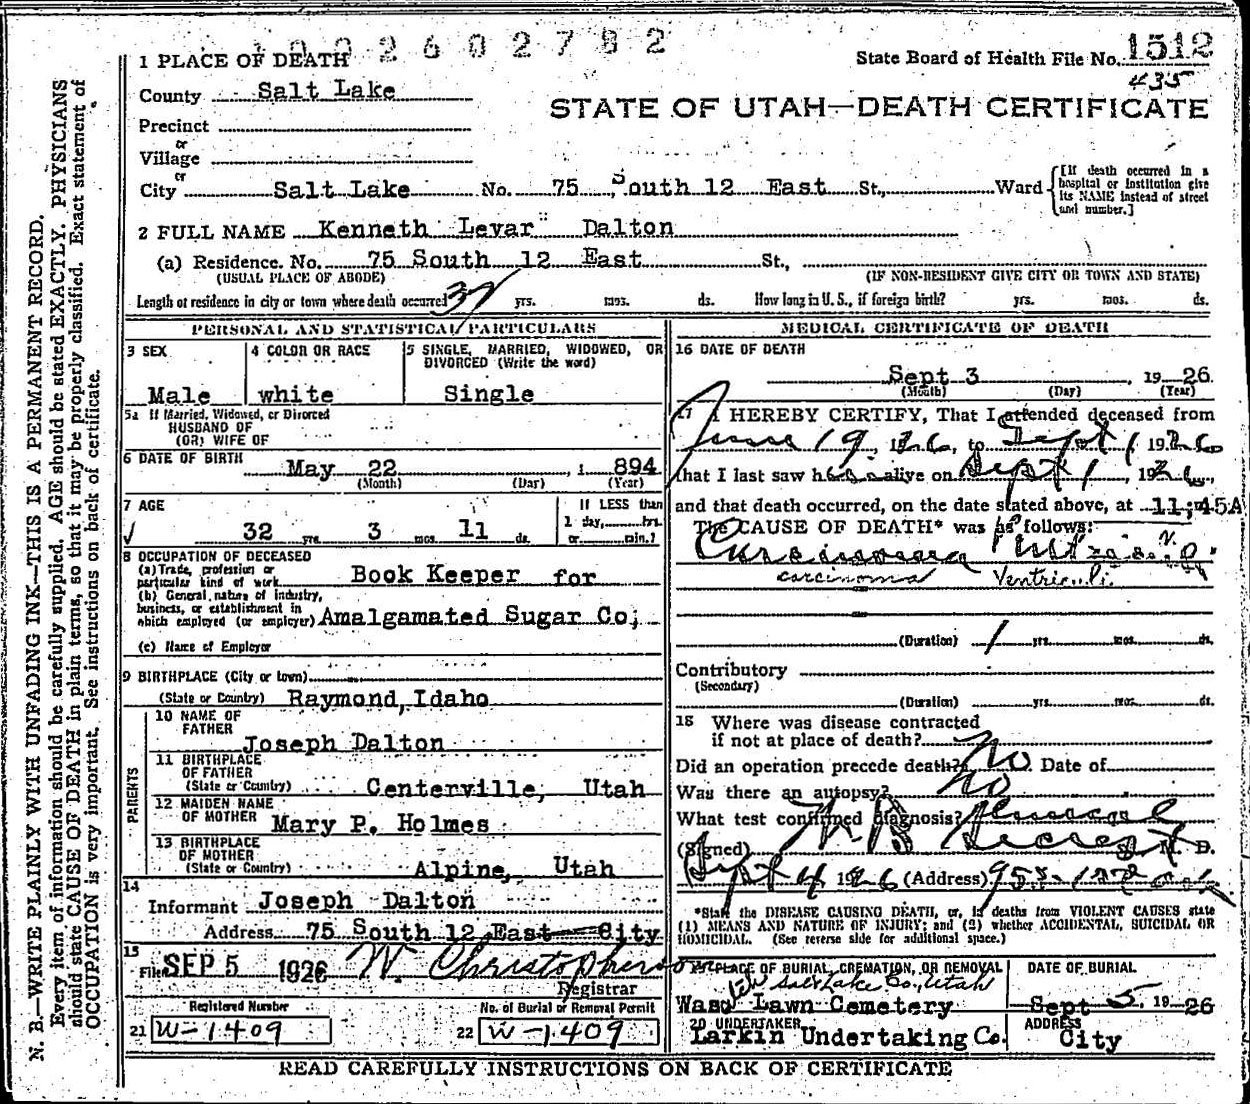 1002602782
1 PLACE OF DEATH
State Board of Health File No. 1512
435
County Salt Lake
STATE OF UTAH—DEATH CERTIFICATE
Precinct
or
Village
or
City Salt Lake No. 75 South 12 East St., Ward
[If death occurred in a hospital or institution give its NAME instead of street and number.]
2 FULL NAME Kenneth Levar Dalton
(a) Residence. No. 75 South 12 East St.,
(USUAL PLACE OF ABODE) (IF NON-RESIDENT GIVE CITY OR TOWN AND STATE)
Length of residence in city or town where death occurred yrs. mos. ds. How long in U. S., if foreign birth? yrs. mos. ds.
PERSONAL AND STATISTICAL PARTICULARS
3 SEX
Male
4 COLOR OR RACE
white
5 SINGLE, MARRIED, WIDOWED, OR DIVORCED (Write the word)
Single
5a If Married, Widowed, or Divorced
HUSBAND OF
(OR) WIFE OF
6 DATE OF BIRTH
May 22, 1894
(Month) (Day) (Year)
7 AGE
32 yrs. 3 mos. 11 ds.
If LESS than
1 day, hrs.
or min.?
8 OCCUPATION OF DECEASED
(a) Trade, profession or
particular kind of work Book Keeper for
(b) General nature of industry,
business, or establishment in
which employed (or employer) Amalgamated Sugar Co;
(c) Name of Employer
9 BIRTHPLACE (City or town)
(State or Country) Raymond, Idaho
PARENTS
10 NAME OF
FATHER
Joseph Dalton
11 BIRTHPLACE
OF FATHER
(State or Country) Centerville, Utah
12 MAIDEN NAME
OF MOTHER Mary P. Holmes
13 BIRTHPLACE
OF MOTHER
(State or Country) Alpine, Utah
14
Informant Joseph Dalton
Address 75 South 12 East City
15
Filed SEP 5 1926 W. Christopherson
Registrar
Registered Number
21 W-1409
No. of Burial or Removal Permit
22 W-1409
MEDICAL CERTIFICATE OF DEATH
16 DATE OF DEATH
Sept 3, 1926
(Month) (Day) (Year)
17 I HEREBY CERTIFY, That I attended deceased from
June 19, 1926, to Sept 1, 1926
that I last saw h alive on Sept 1, 1926,
and that death occurred, on the date stated above, at 11;45A
The CAUSE OF DEATH* was as follows:
Carcinoma
carcinoma Ventriculi
(Duration) 1 yrs. mos. ds.
Contributory
(Secondary)
(Duration) yrs. mos. ds.
18 Where was disease contracted
if not at place of death?
Did an operation precede death? No. Date of
Was there an autopsy? No
What test confirmed diagnosis?
(Signed) M. D.
Sept 4 1926 (Address)
*State the DISEASE CAUSING DEATH, or, in deaths from VIOLENT CAUSES state
(1) MEANS AND NATURE OF INJURY; and (2) whether ACCIDENTAL, SUICIDAL OR
HOMICIDAL. (See reverse side for additional space.)
19 PLACE OF BURIAL, CREMATION, OR REMOVAL
Salt Lake Co., Utah
Lawn Cemetery
DATE OF BURIAL
Sept 5, 1926
20 UNDERTAKER
Larkin Undertaking Co.
ADDRESS
City
READ CAREFULLY INSTRUCTIONS ON BACK OF CERTIFICATE
N. B.—WRITE PLAINLY WITH UNFADING INK—THIS IS A PERMANENT RECORD.
Every item of information should be carefully supplied. AGE should be stated EXACTLY. PHYSICIANS
should state CAUSE OF DEATH in plain terms, so that it may be properly classified. Exact statement of
OCCUPATION is very important. See instructions on back of certificate.